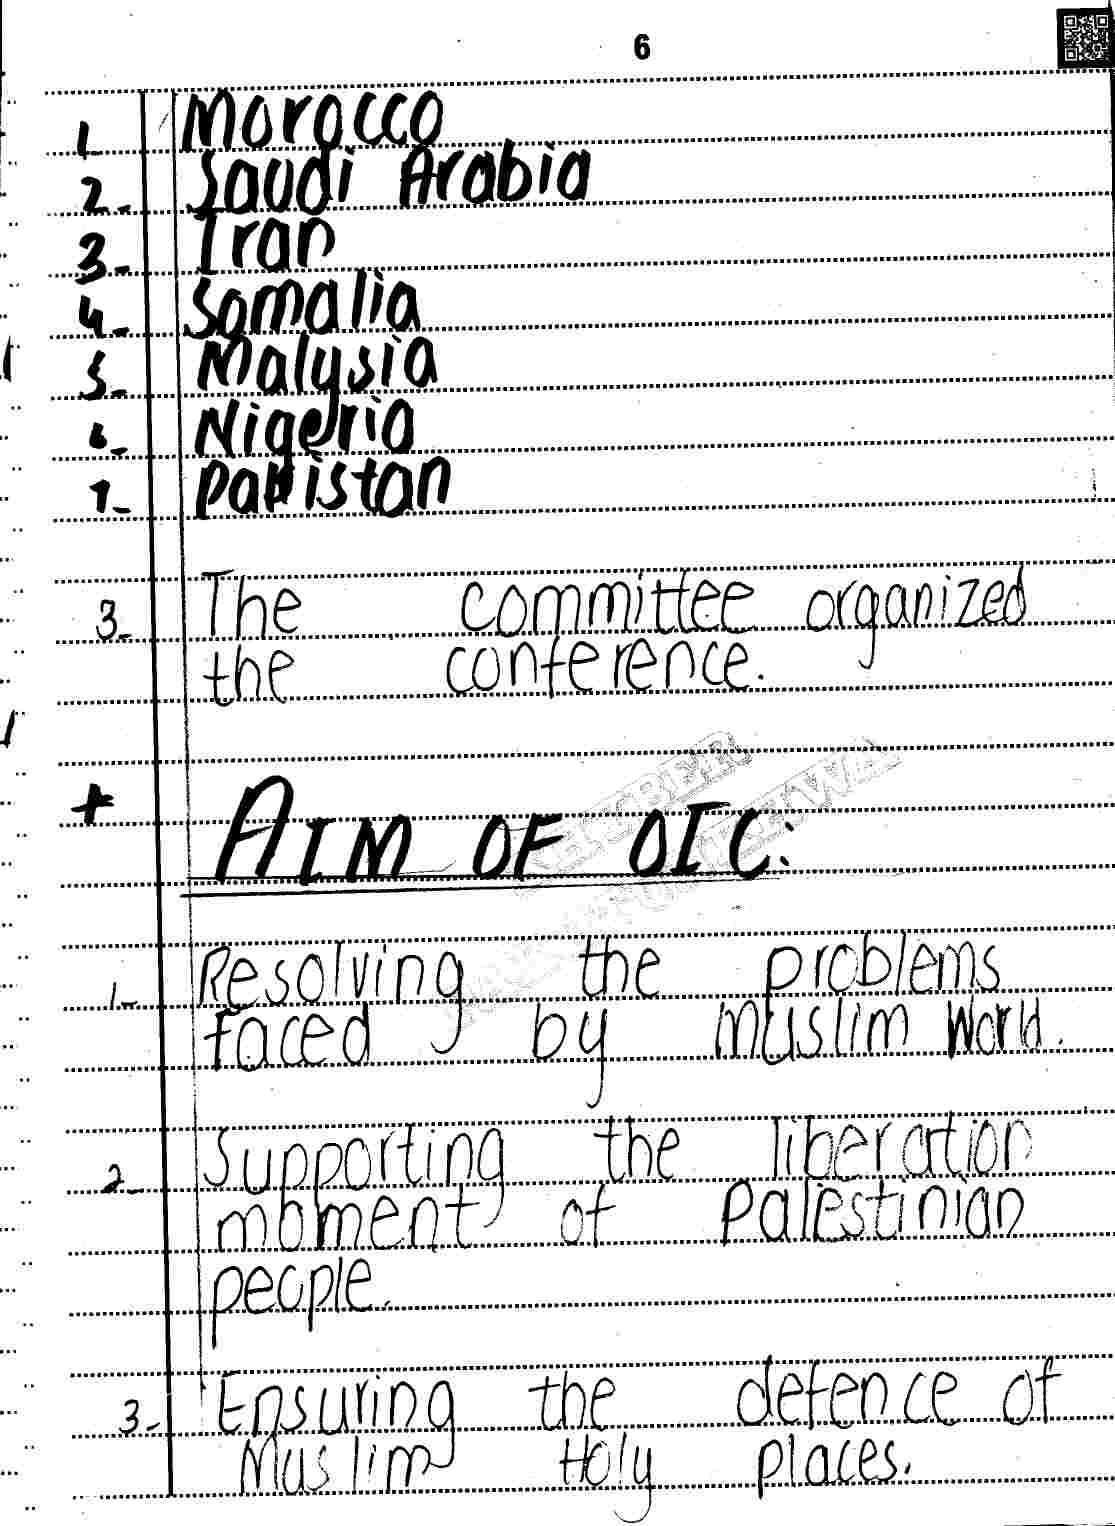 6
1. Morocco
2- Saudi Arabia
3- Iran
4- Somalia
5- Malysia
6- Nigeria
7- Pakistan
3- The committee organized
the conference.
+ AIM OF OIC:
1- Resolving the problems
faced by Muslim World.
2- Supporting the liberation
moment of Palestinian
people.
3- Ensuring the defence of
Muslim Holy places.
KHYBER
PAKHTUNKHWA